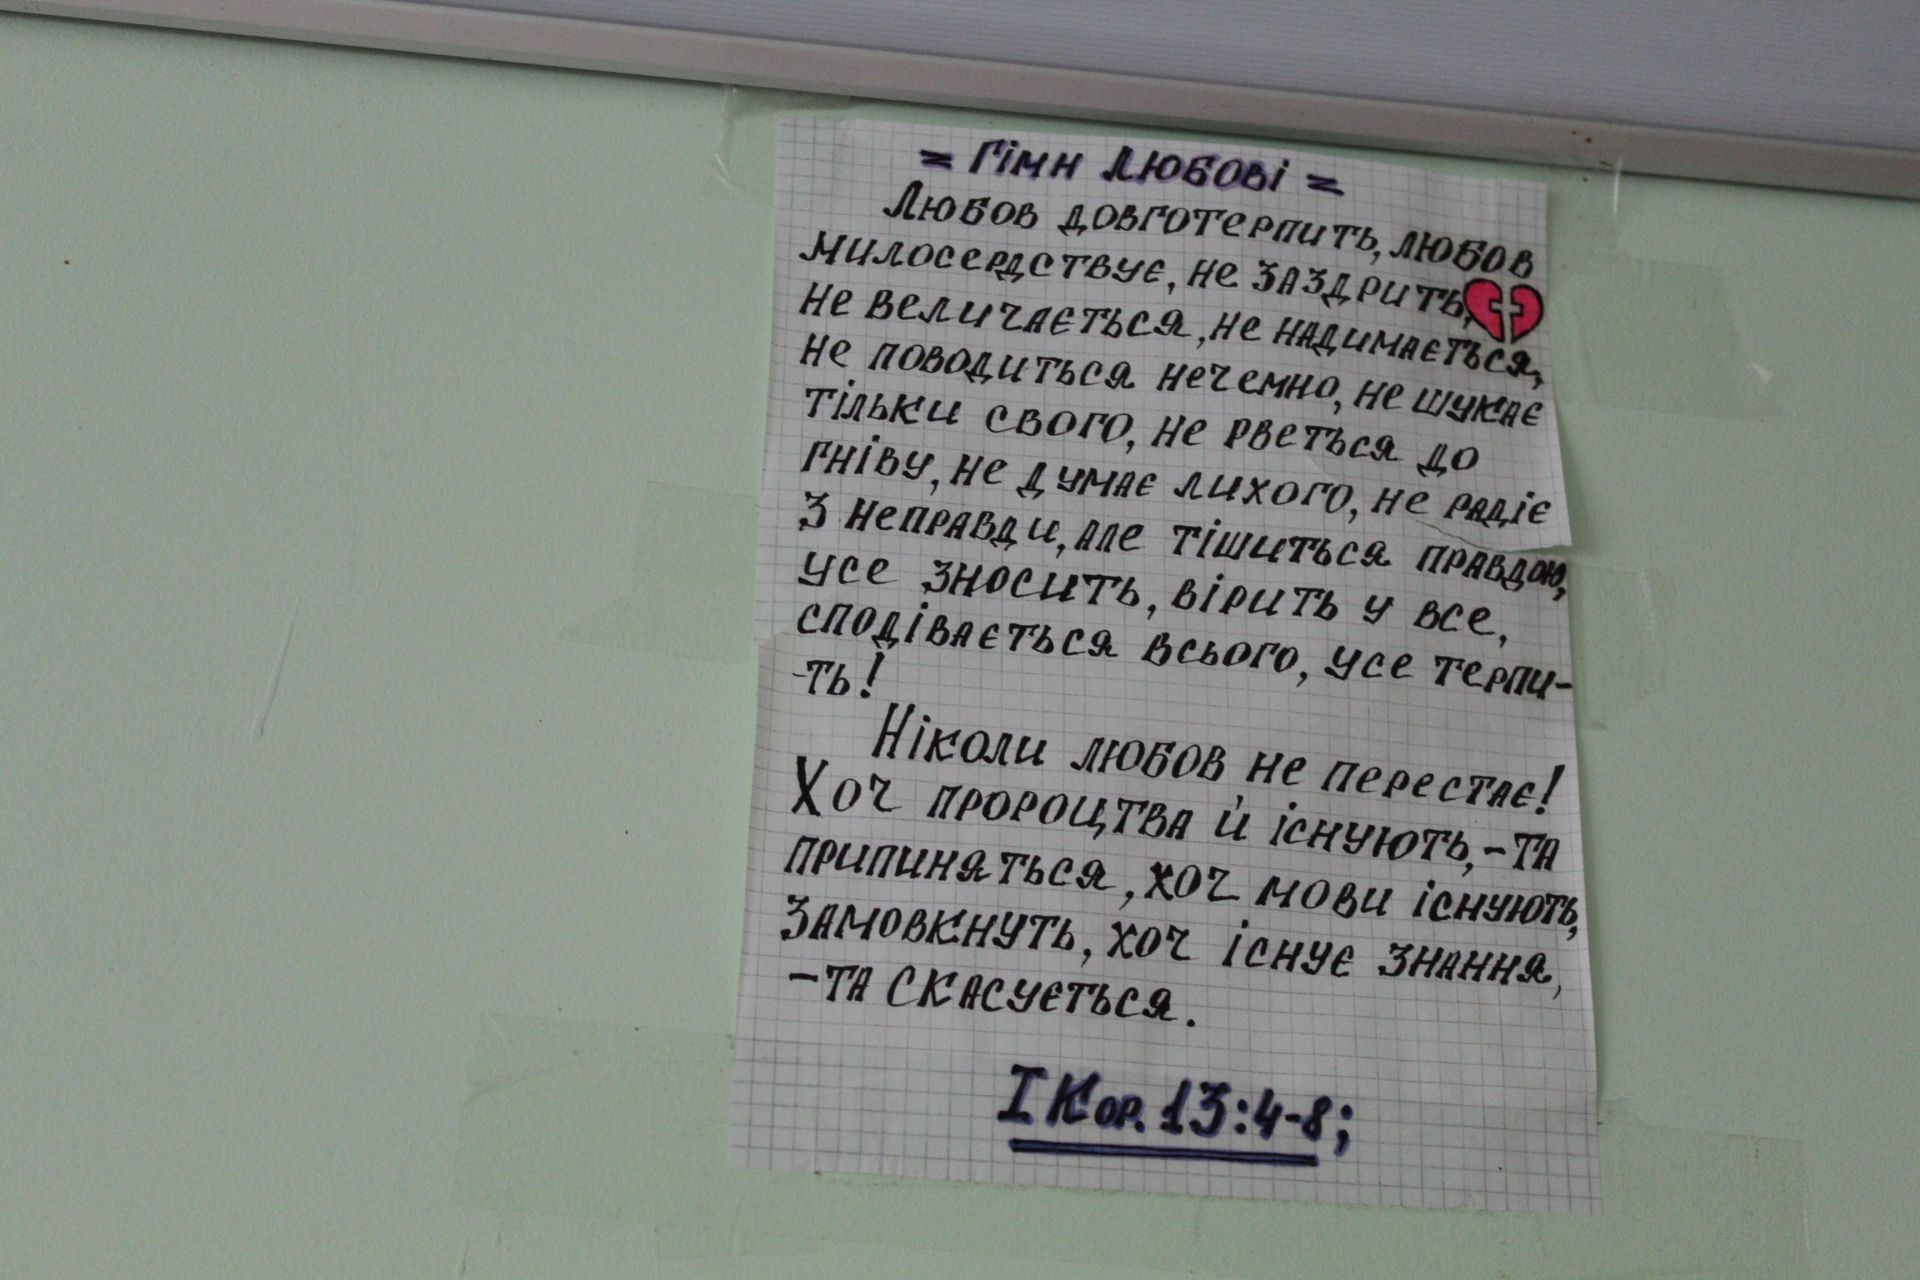 = Гімн Любові =
Любов довготерпить, любов
милосердствує, не заздрить,
не величається, не надимається,
не поводиться нечемно, не шукає
тільки свого, не рветься до
гніву, не думає лихого, не радіє
з неправди, але тішиться правдою,
усе зносить, вірить у все,
сподівається всього, усе терпи-
-ть!
Ніколи любов не перестає!
Хоч пророцтва й існують, - та
припиняться, хоч мови існують,
замовкнуть, хоч існує знання,
- та скасується.
І Кор. 13:4-8;